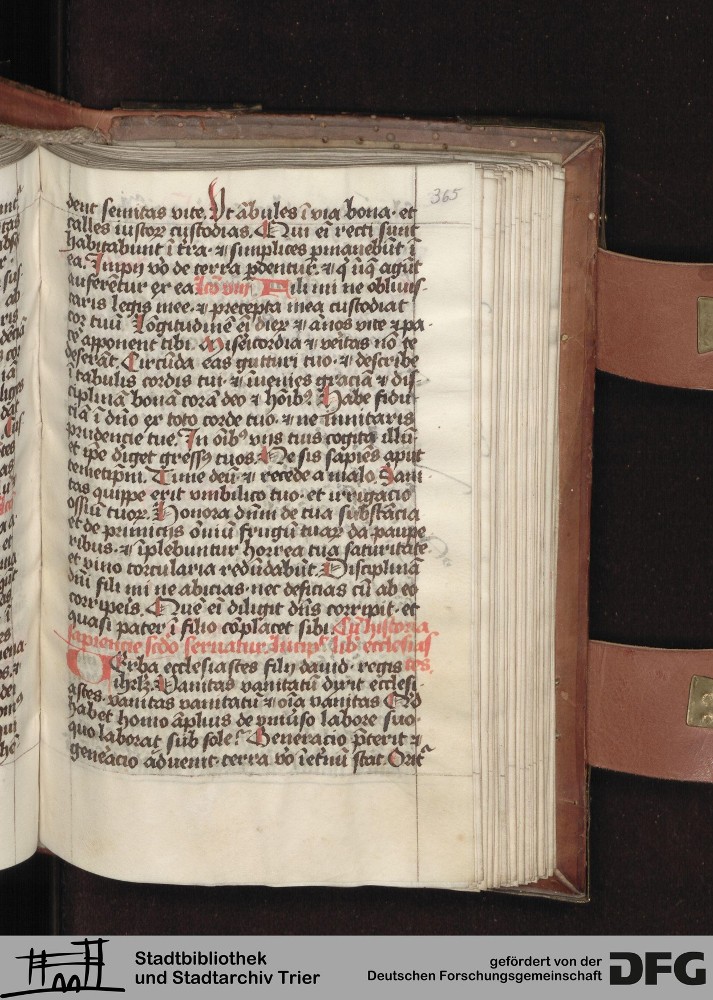 365
dent semitas vite. Vt ãbules ĩ via bona· et
calles iustoꝝ custodias. Qui eĩ recti sunt
habitabunt ĩ t̃ra· ⁊ simplices ꝑmanebũt ĩ
ea. Impij vo de terra ꝑdentur̃· ⁊ q̃ iniq̃ agũt
auferetur ex ea Fili mi ne obliuis-
caris legis mee· ⁊ precepta mea custodiat
cor tuũ Lõgitudinẽ eĩ dieꝝ ⁊ ãnos vite ⁊ pa-
cẽ apponent tibi. Misericordia ⁊ veritas nõ te
deserãt. Circũda eas gutturi tuo· ⁊ describe
ĩ tabulis cordis tui· ⁊ inuenies graciã ⁊ dis-
ciplinã bonã corã deo ⁊ hoĩbꝫ. Habe fidu-
ciã ĩ dño ex toto corde tuo· ⁊ ne innitaris
prudencie tue. In oĩbꝫ vijs tuis cogita illũ·
et ip̃e diriget gressꝫ tuos. Ne sis sapiẽs aput
temetip̃m. Time deũ· ⁊ recede a malo. Sani-
tas quippe erit vmbilico tuo· et irrigacio
ossiũ tuoꝝ. Honora dñm de tua substãcia
et de primicijs õniũ frugũ tuaꝝ da paupe
ribus· ⁊ ĩplebuntur horrea tua saturitate·
et vino torcularia redũdabũt. Disciplinã
dñi fili mi ne abicias· nec deficias cũ ab eo
corriperis. Quẽ eĩ diligit dñs corripit· et
quasi pater ĩ filio cõplacet sibi. Cũ historia
sapiencie scdo seruatur. Incip̃t lib̃ ecclesias
tes.
Verba ecclesiastes filij dauid· regis
ihrlꝫ. Vanitas vanitatũ dixit ecclesi-
astes· vanitas vanitatũ ⁊ oĩa vanitas Qͥd
habet homo ãplius de vniũso labore suo·
quo laborat sub sole? Generacio p̃terit ⁊
gen̄eacio aduenit· terra vo ĩ etnũ stat. Orit̃
Stadtbibliothek
und Stadtarchiv Trier
gefördert von der
Deutschen Forschungsgemeinschaft
DFG